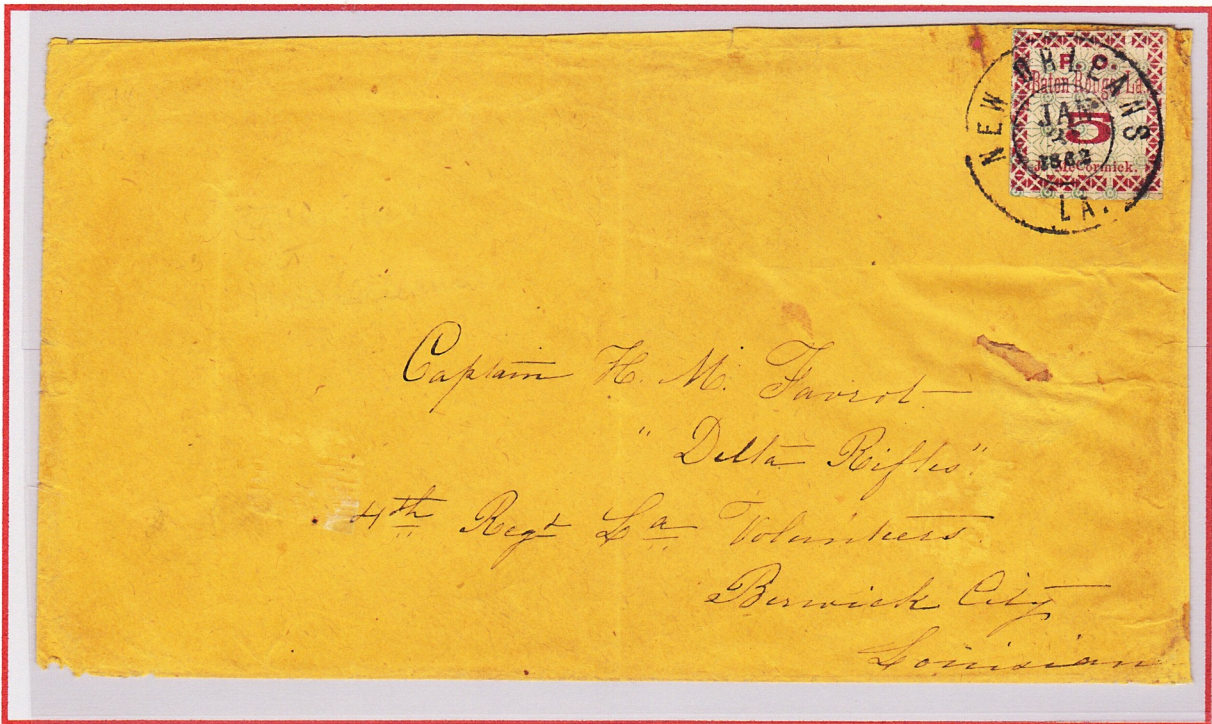 NEW ORLEANS
P. O.
Baton Rouge, La.
JAN
5
1862
J. McCormick.
LA.
Captain H. M. Favrot
"Delta Rifles"
4th Regt La Volunteers
Berwick City
Louisian